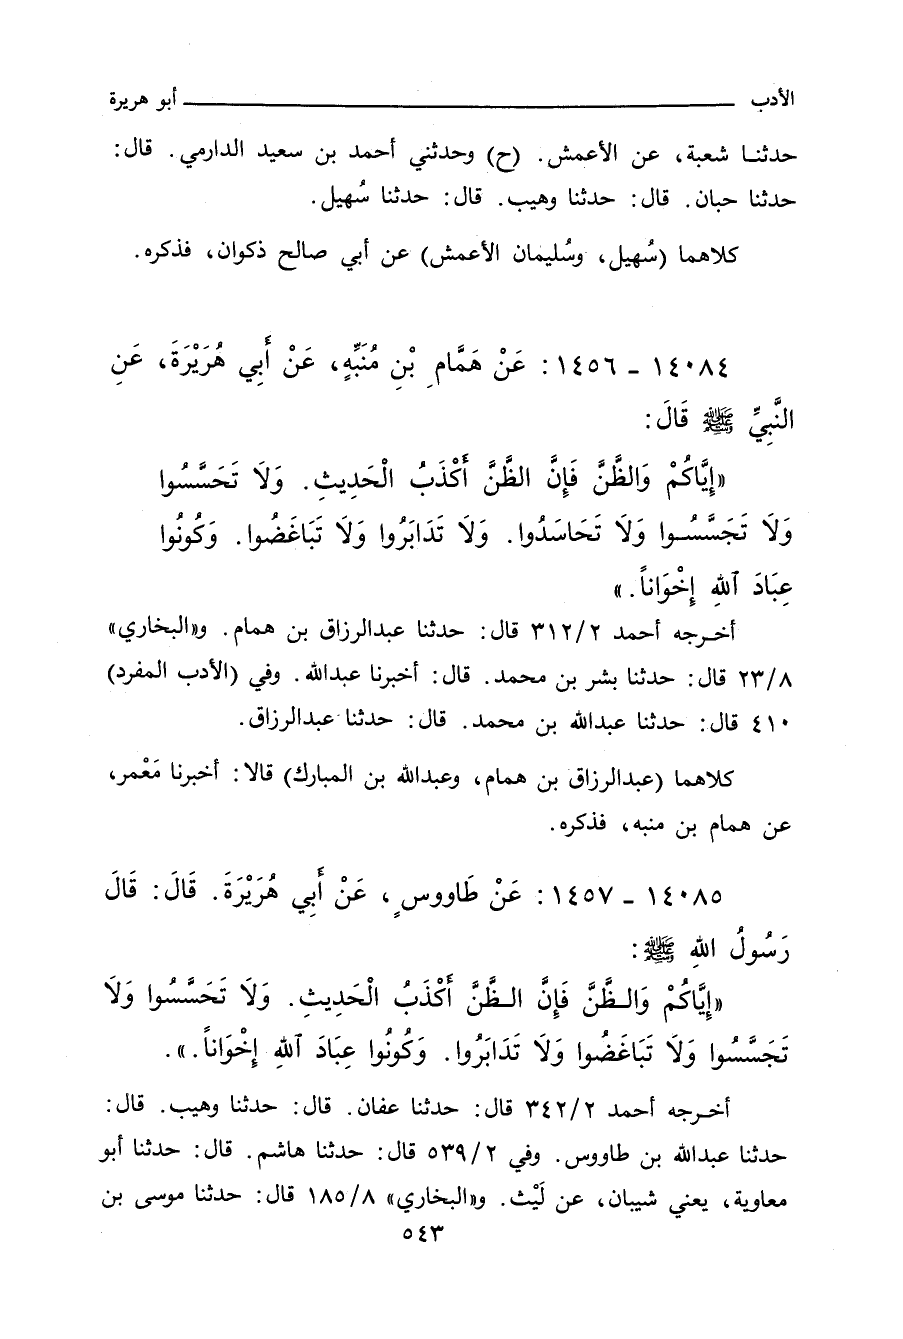 الأدب ــــــــــــــــــــ أبو هريرة
حدثنا شعبة، عن الأعمش. (ح) وحدثني أحمد بن سعيد الدارمي. قال:
حدثنا حبان. قال: حدثنا وهيب. قال: حدثنا سُهيل.
كلاهما (سُهيل، وسُليمان الأعمش) عن أبي صالح ذكوان، فذكره.
١٤٠٨٤ ـ ١٤٥٦: عَنْ هَمَّامِ بْنِ مُنَبِّهٍ، عَنْ أَبِي هُرَيْرَةَ، عَنِ
النَّبِيِّ ﷺ قَالَ:
«إِيَّاكُمْ وَالظَّنَّ فَإِنَّ الظَّنَّ أَكْذَبُ الْحَدِيثِ. وَلَا تَحَسَّسُوا
وَلَا تَجَسَّسُوا وَلَا تَحَاسَدُوا. وَلَا تَدَابَرُوا وَلَا تَبَاغَضُوا. وَكُونُوا
عِبَادَ ٱللهِ إِخْوَاناً.»
أخرجه أحمد ٣١٢/٢ قال: حدثنا عبدالرزاق بن همام. و«البخاري»
٢٣/٨ قال: حدثنا بشر بن محمد. قال: أخبرنا عبدالله. وفي (الأدب المفرد)
٤١٠ قال: حدثنا عبدالله بن محمد. قال: حدثنا عبدالرزاق.
كلاهما (عبدالرزاق بن همام، وعبدالله بن المبارك) قالا: أخبرنا مَعْمر،
عن همام بن منبه، فذكره.
١٤٠٨٥ ـ ١٤٥٧: عَنْ طَاووسٍ، عَنْ أَبِي هُرَيْرَةَ. قَالَ: قَالَ
رَسُولُ اللهِ ﷺ:
«إِيَّاكُمْ وَالظَّنَّ فَإِنَّ الظَّنَّ أَكْذَبُ الْحَدِيثِ. وَلَا تَحَسَّسُوا وَلَا
تَجَسَّسُوا وَلَا تَبَاغَضُوا وَلَا تَدَابَرُوا. وَكُونُوا عِبَادَ ٱللهِ إِخْوَاناً.».
أخرجه أحمد ٣٤٢/٢ قال: حدثنا عفان. قال: حدثنا وهيب. قال:
حدثنا عبدالله بن طاووس. وفي ٥٣٩/٢ قال: حدثنا هاشم. قال: حدثنا أبو
معاوية، يعني شيبان، عن لَيْث. و«البخاري» ١٨٥/٨ قال: حدثنا موسى بن
٥٤٣